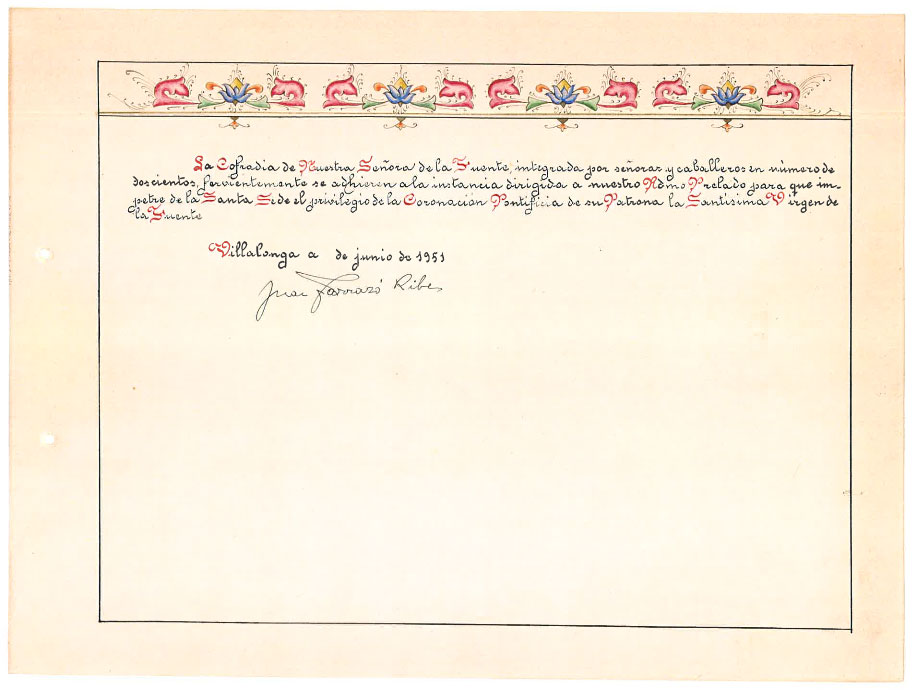 La Cofradia de Nuestra Señora de la Fuente, integrada por señoras y caballeros en número de
doscientos, fervientemente se adhieren a la instancia dirigida a nuestro Rdmo Prelado para que im-
petre de la Santa Sede el privilegio de la Coronación Pontificia de su Patrona la Santísima Virgen de
la Fuente
Villalonga a de junio de 1951
Juan Tarrazó Ribes